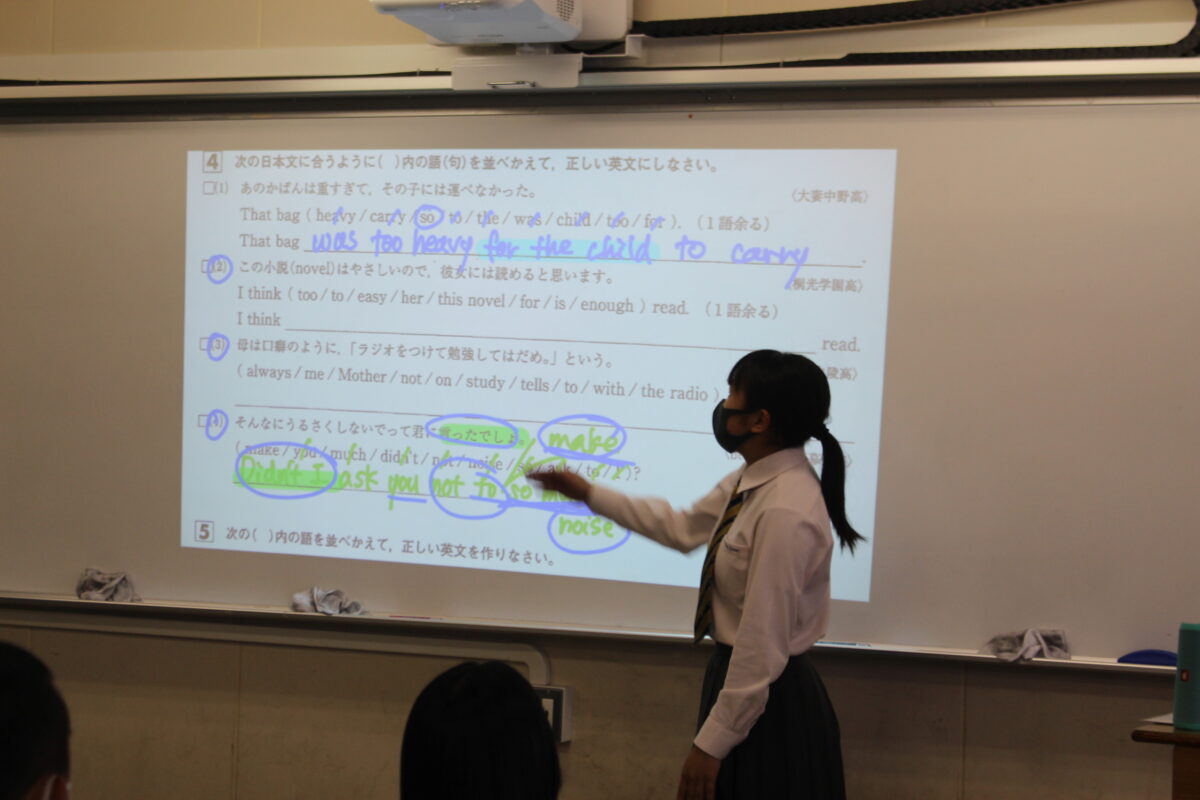 4 次の日本文に合うように( )内の語(句)を並べかえて，正しい英文にしなさい。
(1) あのかばんは重すぎて，その子には運べなかった。 〈大妻中野高〉
That bag ( heavy / carry / so / to / the / was / child / too / for ). （1語余る）
That bag was too heavy for the child to carry.
(2) この小説(novel)はやさしいので，彼女には読めると思います。 〈桐光学園高〉
I think ( too / to / easy / her / this novel / for / is / enough ) read. （1語余る）
I think read.
(3) 母は口癖のように，「ラジオをつけて勉強してはだめ。」という。 陵高〉
( always / me / Mother / not / on / study / tells / to / with / the radio )
(4) そんなにうるさくしないでって君に言ったでしょ。 make
( make / you / much / didn't / not / noise / so / ask / to / I )?
Didn't I ask you not to so
noise
5 次の( )内の語を並べかえて，正しい英文を作りなさい。